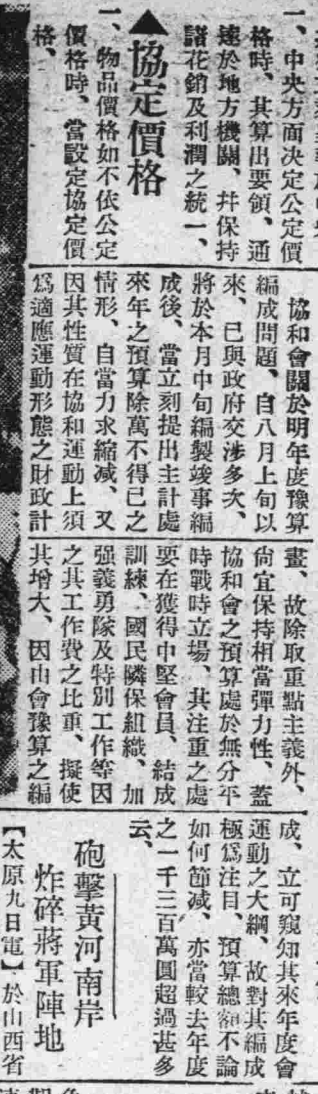 一、中央方面决定公定價
格時、其算出要領、通
達於地方機關、幷保持
諸花銷及利潤之統一、
▲協定價格
一、物品價格如不依公定
價格時、當設定協定價
格、
協和會關於明年度豫算
編成問題、自八月上旬以
來、已與政府交涉多次、
將於本月中旬編製竣事編
成後、當立刻提出主計處
來年之預算除萬不得已之
情形、自當力求縮減、又
因其性質在協和運動上須
爲適應運動形態之財政計
畫、故除取重點主義外、
尙宜保持相當彈力性、蓋
協和會之預算處於無分平
時戰時立場、其注重之處
要在獲得中堅會員、結成
訓練、國民隣保組織、加
强義勇隊及特別工作等因
之其工作費之比重、擬使
其增大、因由會豫算之編
成、立可窺知其來年度會
運動之大綱、故對其編成
極爲注目、預算總額不論
如何節減、亦當較去年度
之一千三百萬圓超過甚多
云、
砲擊黃河南岸
炸碎蔣軍陣地
【太原九日電】於山西省